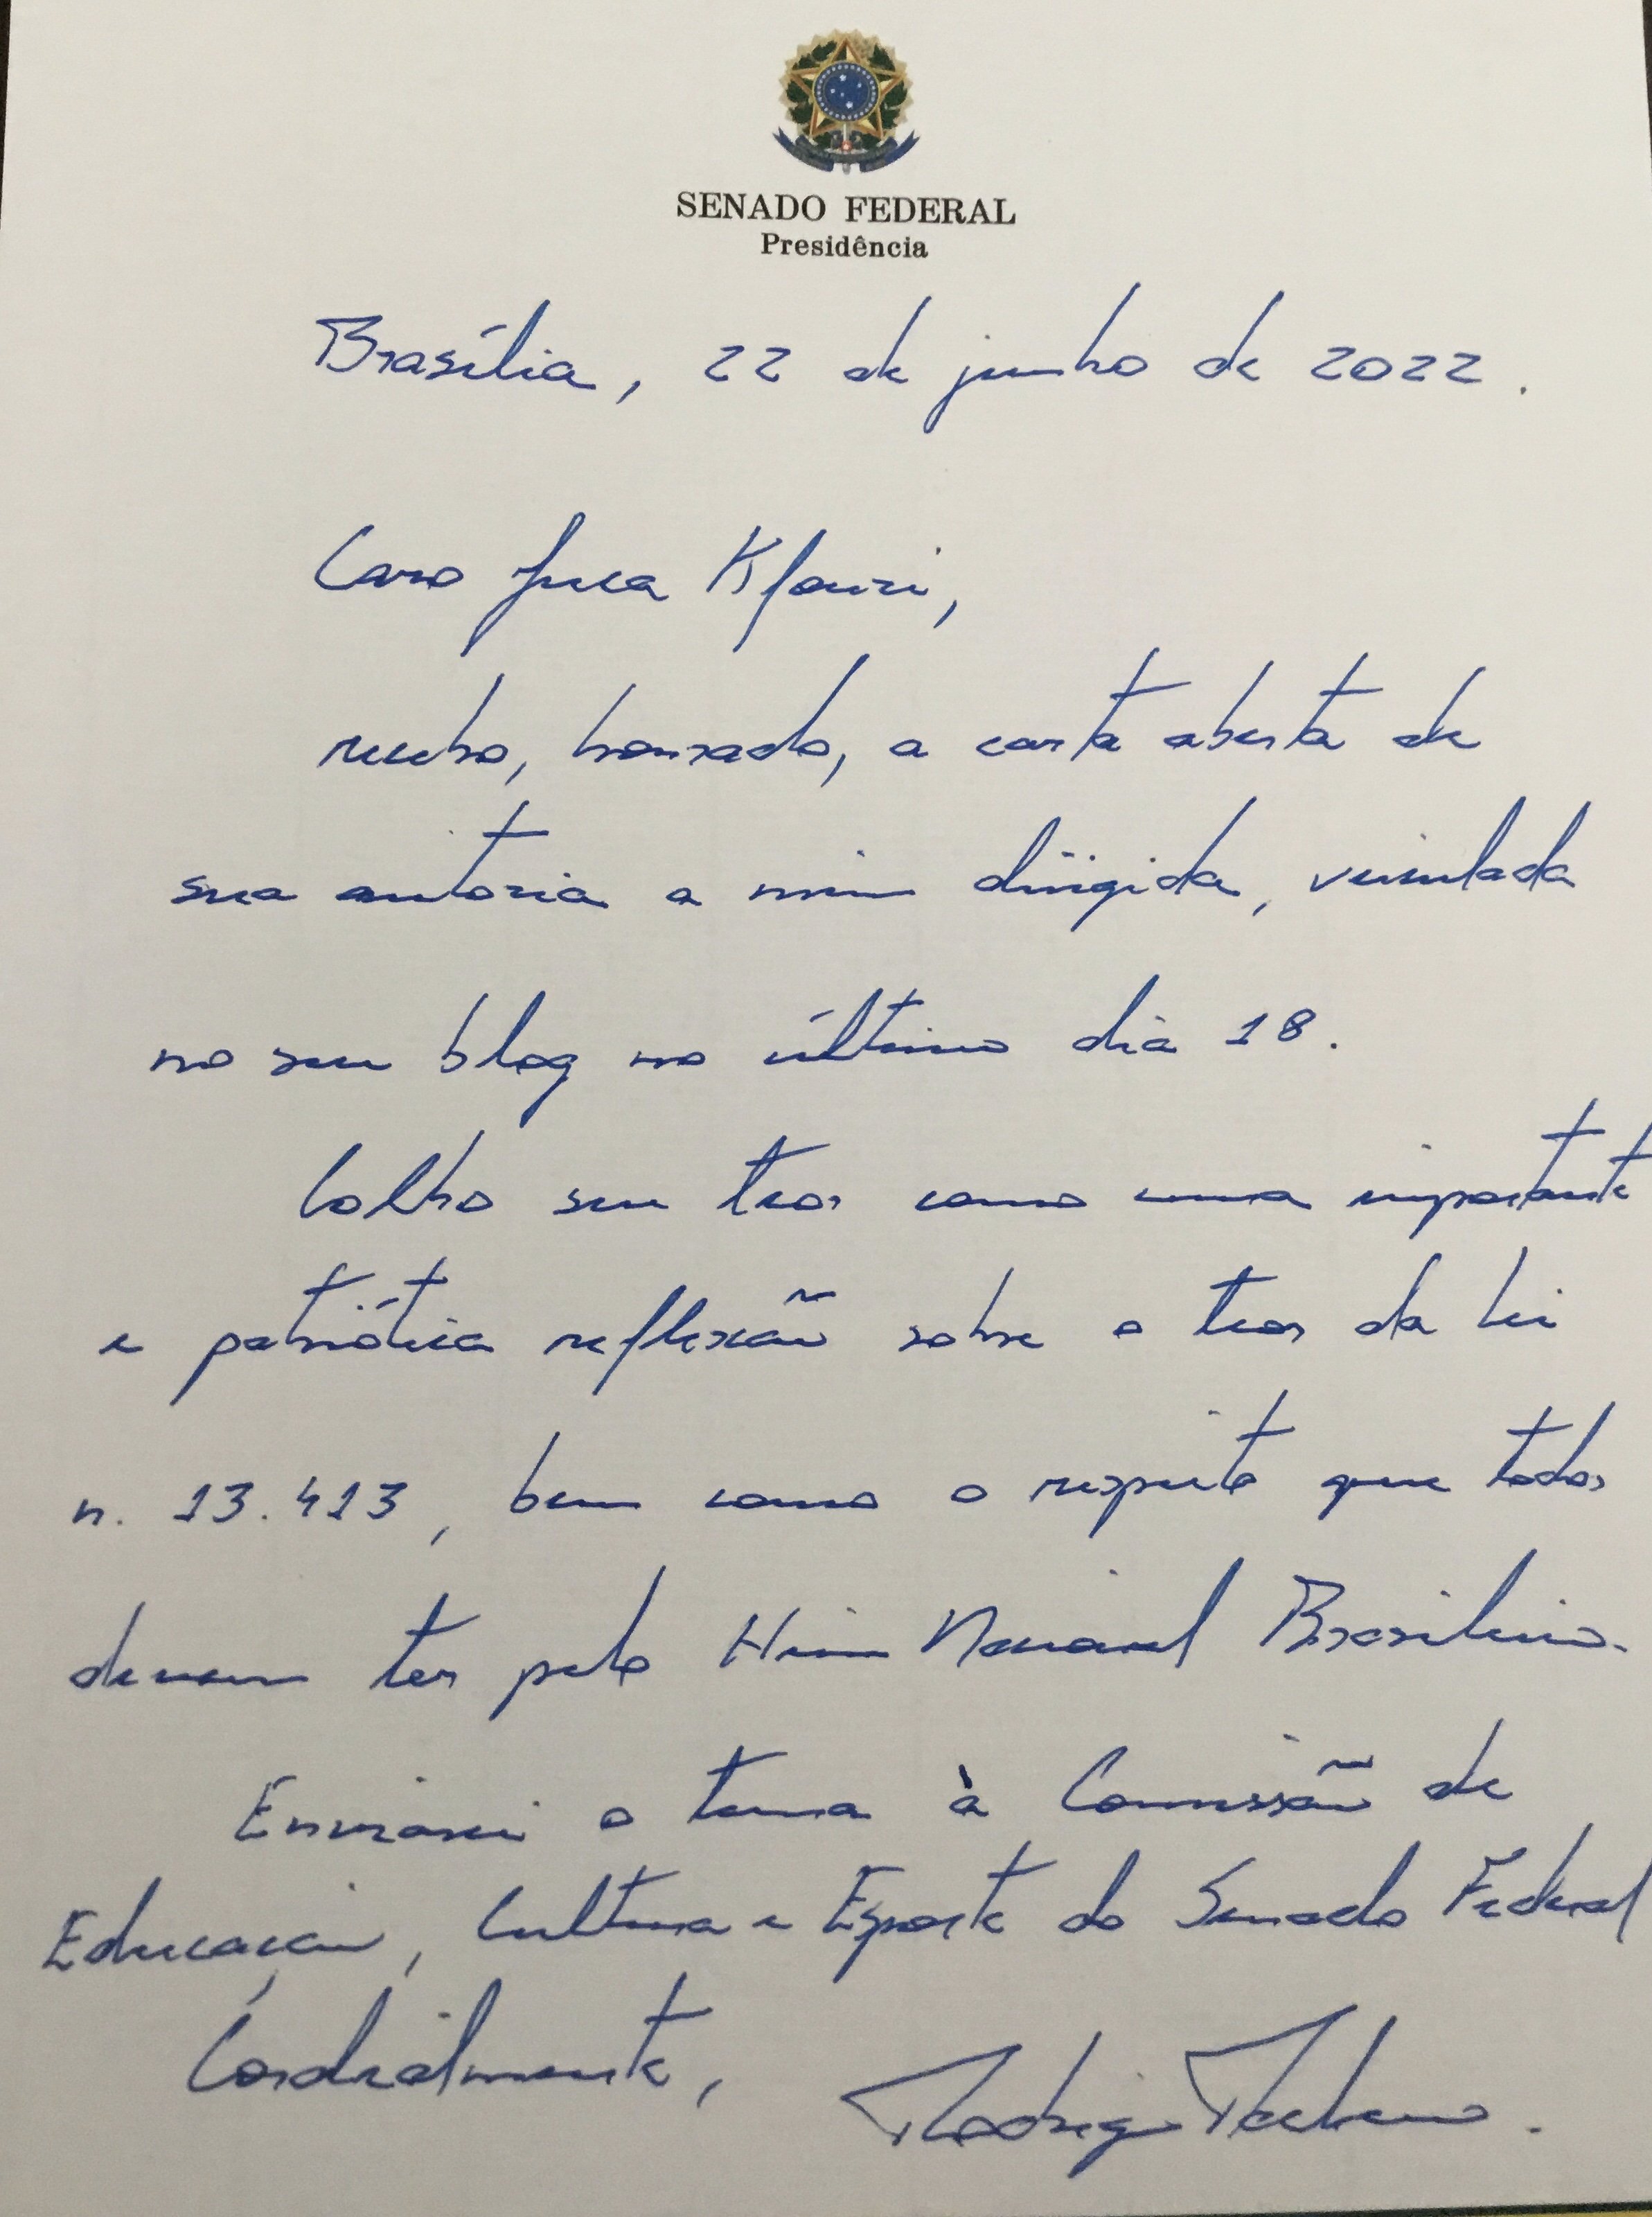 SENADO FEDERAL
Presidência
Brasília, 22 de junho de 2022.
Caro Juca Kfouri,
recebo, honrado, a carta aberta de
sua autoria a mim dirigida, veiculada
no seu blog no último dia 18.
Colho seu teor como uma importante
e patriótica reflexão sobre o teor da lei
n. 13.413, bem como o respeito que todos
devem ter pelo Hino Nacional Brasileiro.
Enviarei o tema à Comissão de
Educação, Cultura e Esporte do Senado Federal
Cordialmente, Rodrigo Pacheco.